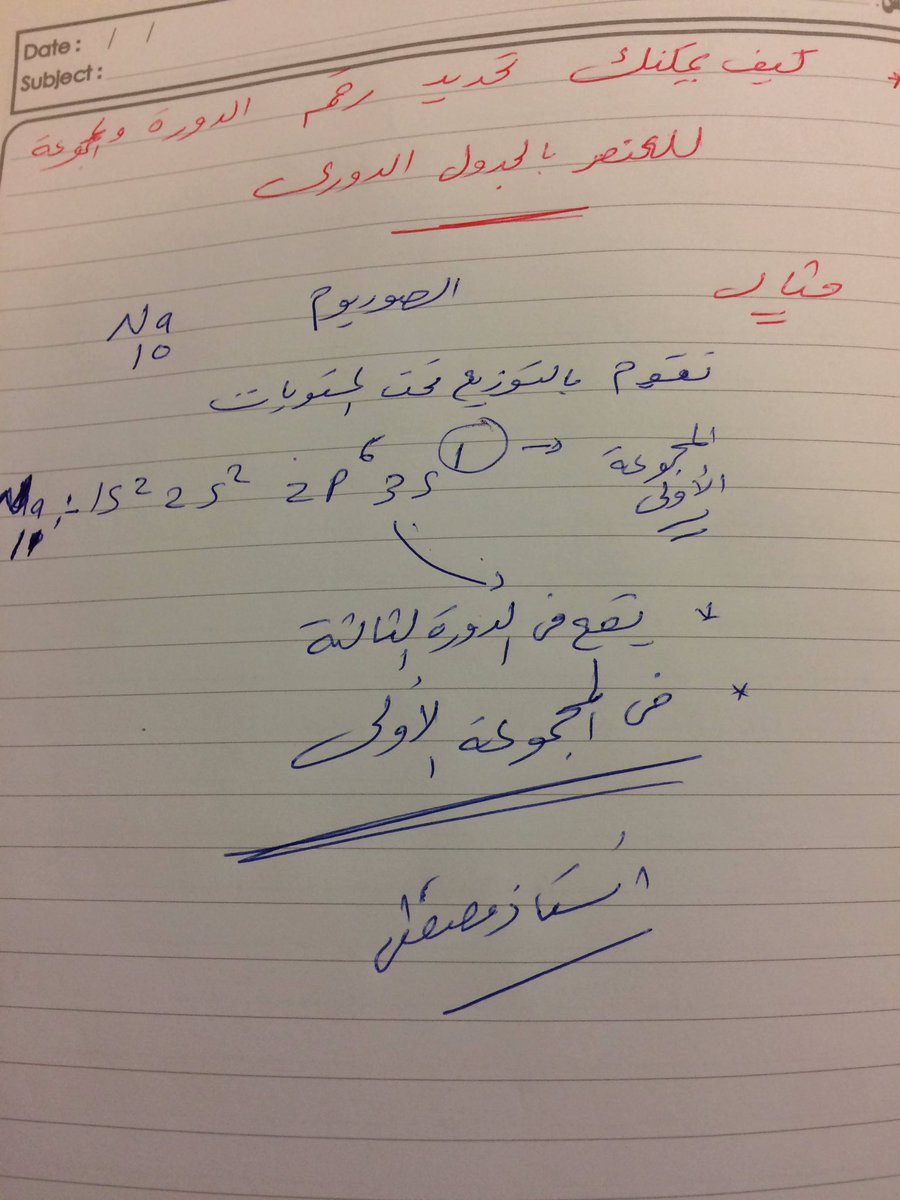 Date: / /
Subject:
* كيف يمكنك تحديد رقم الدورة والمجموعة
للعنصر بالجدول الدورى
مثال الصوديوم Na
10
نقوم بالتوزيع تحت المستويات
Na :- 1S² 2S² 2P⁶ 3S¹ → المجموعة
11 الأولى
* يقع فى الدورة الثالثة
* فى المجموعة الأولى